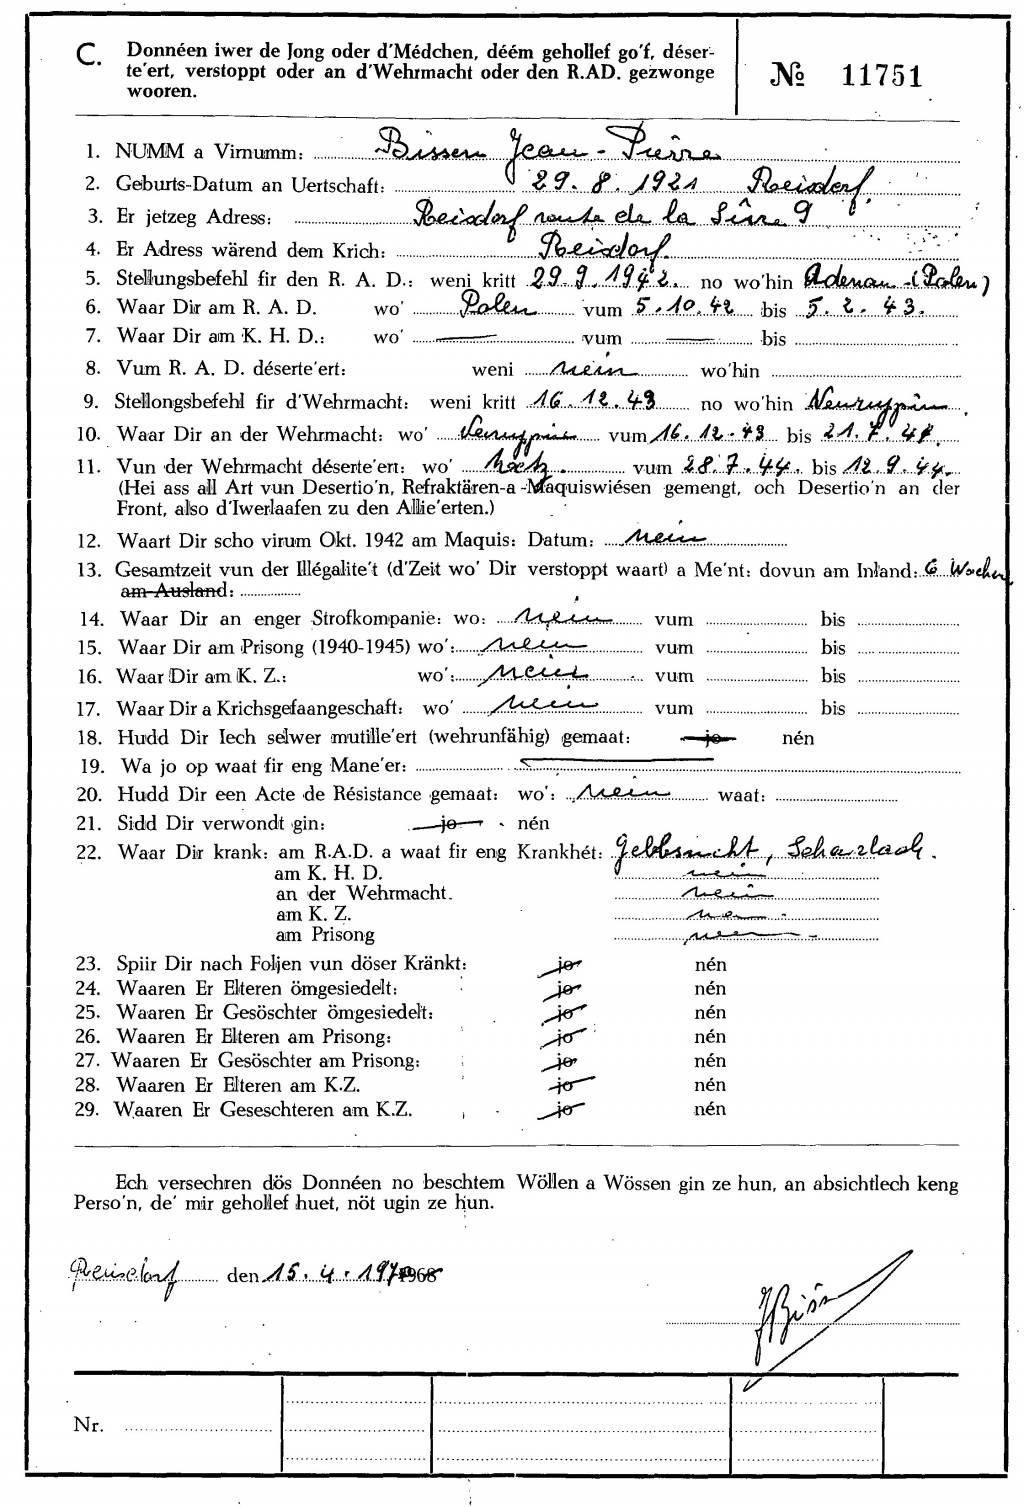 C. Donnéen iwer de Jong oder d'Médchen, déém gehollef go'f, déser-
te'ert, verstoppt oder an d'Wehrmacht oder den R.AD. gezwonge
wooren.
№ 11751
1. NUMM a Virnumm: Bissen Jean-Pierre
2. Geburts-Datum an Uertschaft: 29.8.1921 Reisdorf.
3. Er jetzeg Adress: Reisdorf route de la Sûre 9
4. Er Adress wärend dem Krich: Reisdorf.
5. Stellungsbefehl fir den R. A. D.: weni kritt 29.9.1942. no wo'hin Adenau-(Polen)
6. Waar Dir am R. A. D. wo' Polen vum 5.10.42 bis 5.2.43.
7. Waar Dir am K. H. D.: wo' — vum — bis
8. Vum R. A. D. déserte'ert: weni nein wo'hin
9. Stellongsbefehl fir d'Wehrmacht: weni kritt 16.12.43 no wo'hin Neuruppin.
10. Waar Dir an der Wehrmacht: wo' Neuruppin vum 16.12.43 bis 21.7.44.
11. Vun der Wehrmacht déserte'ert: wo' Metz. vum 28.7.44. bis 12.9.44.
(Hei ass all Art vun Desertio'n, Refraktären-a-Maquiswiésen gemengt, och Desertio'n an der
Front, also d'Iwerlaafen zu den Allie'erten.)
12. Waart Dir scho virum Okt. 1942 am Maquis: Datum: nein
13. Gesamtzeit vun der Illégalite't (d'Zeit wo' Dir verstoppt waart) a Me'nt: dovun am Inland: 6 Wochen
am Ausland:
14. Waar Dir an enger Strofkompanie: wo: nein vum bis
15. Waar Dir am Prisong (1940-1945) wo': nein vum bis
16. Waar Dir am K. Z.: wo': nein vum bis
17. Waar Dir a Krichsgefaangeschaft: wo' nein vum bis
18. Hudd Dir Iech selwer mutille'ert (wehrunfähig) gemaat: jo nén
19. Wa jo op waat fir eng Mane'er:
20. Hudd Dir een Acte de Résistance gemaat: wo': nein waat:
21. Sidd Dir verwondt gin: jo nén
22. Waar Dir krank: am R.A.D. a waat fir eng Krankhét: Gelbsucht, Scharlach.
am K. H. D. nein
an der Wehrmacht. nein
am K. Z. nein
am Prisong nein
23. Spiir Dir nach Foljen vun döser Kränkt: jo nén
24. Waaren Er Elteren ömgesiedelt: jo nén
25. Waaren Er Gesöschter ömgesiedelt: jo nén
26. Waaren Er Elteren am Prisong: jo nén
27. Waaren Er Gesöschter am Prisong: jo nén
28. Waaren Er Elteren am K.Z. jo nén
29. Waaren Er Geseschteren am K.Z. jo nén
Ech versechren dös Donnéen no beschtem Wöllen a Wössen gin ze hun, an absichtlech keng
Perso'n, de' mir gehollef huet, nöt ugin ze hun.
Reisdorf den 15.4.197 1968
J Bissen
Nr.